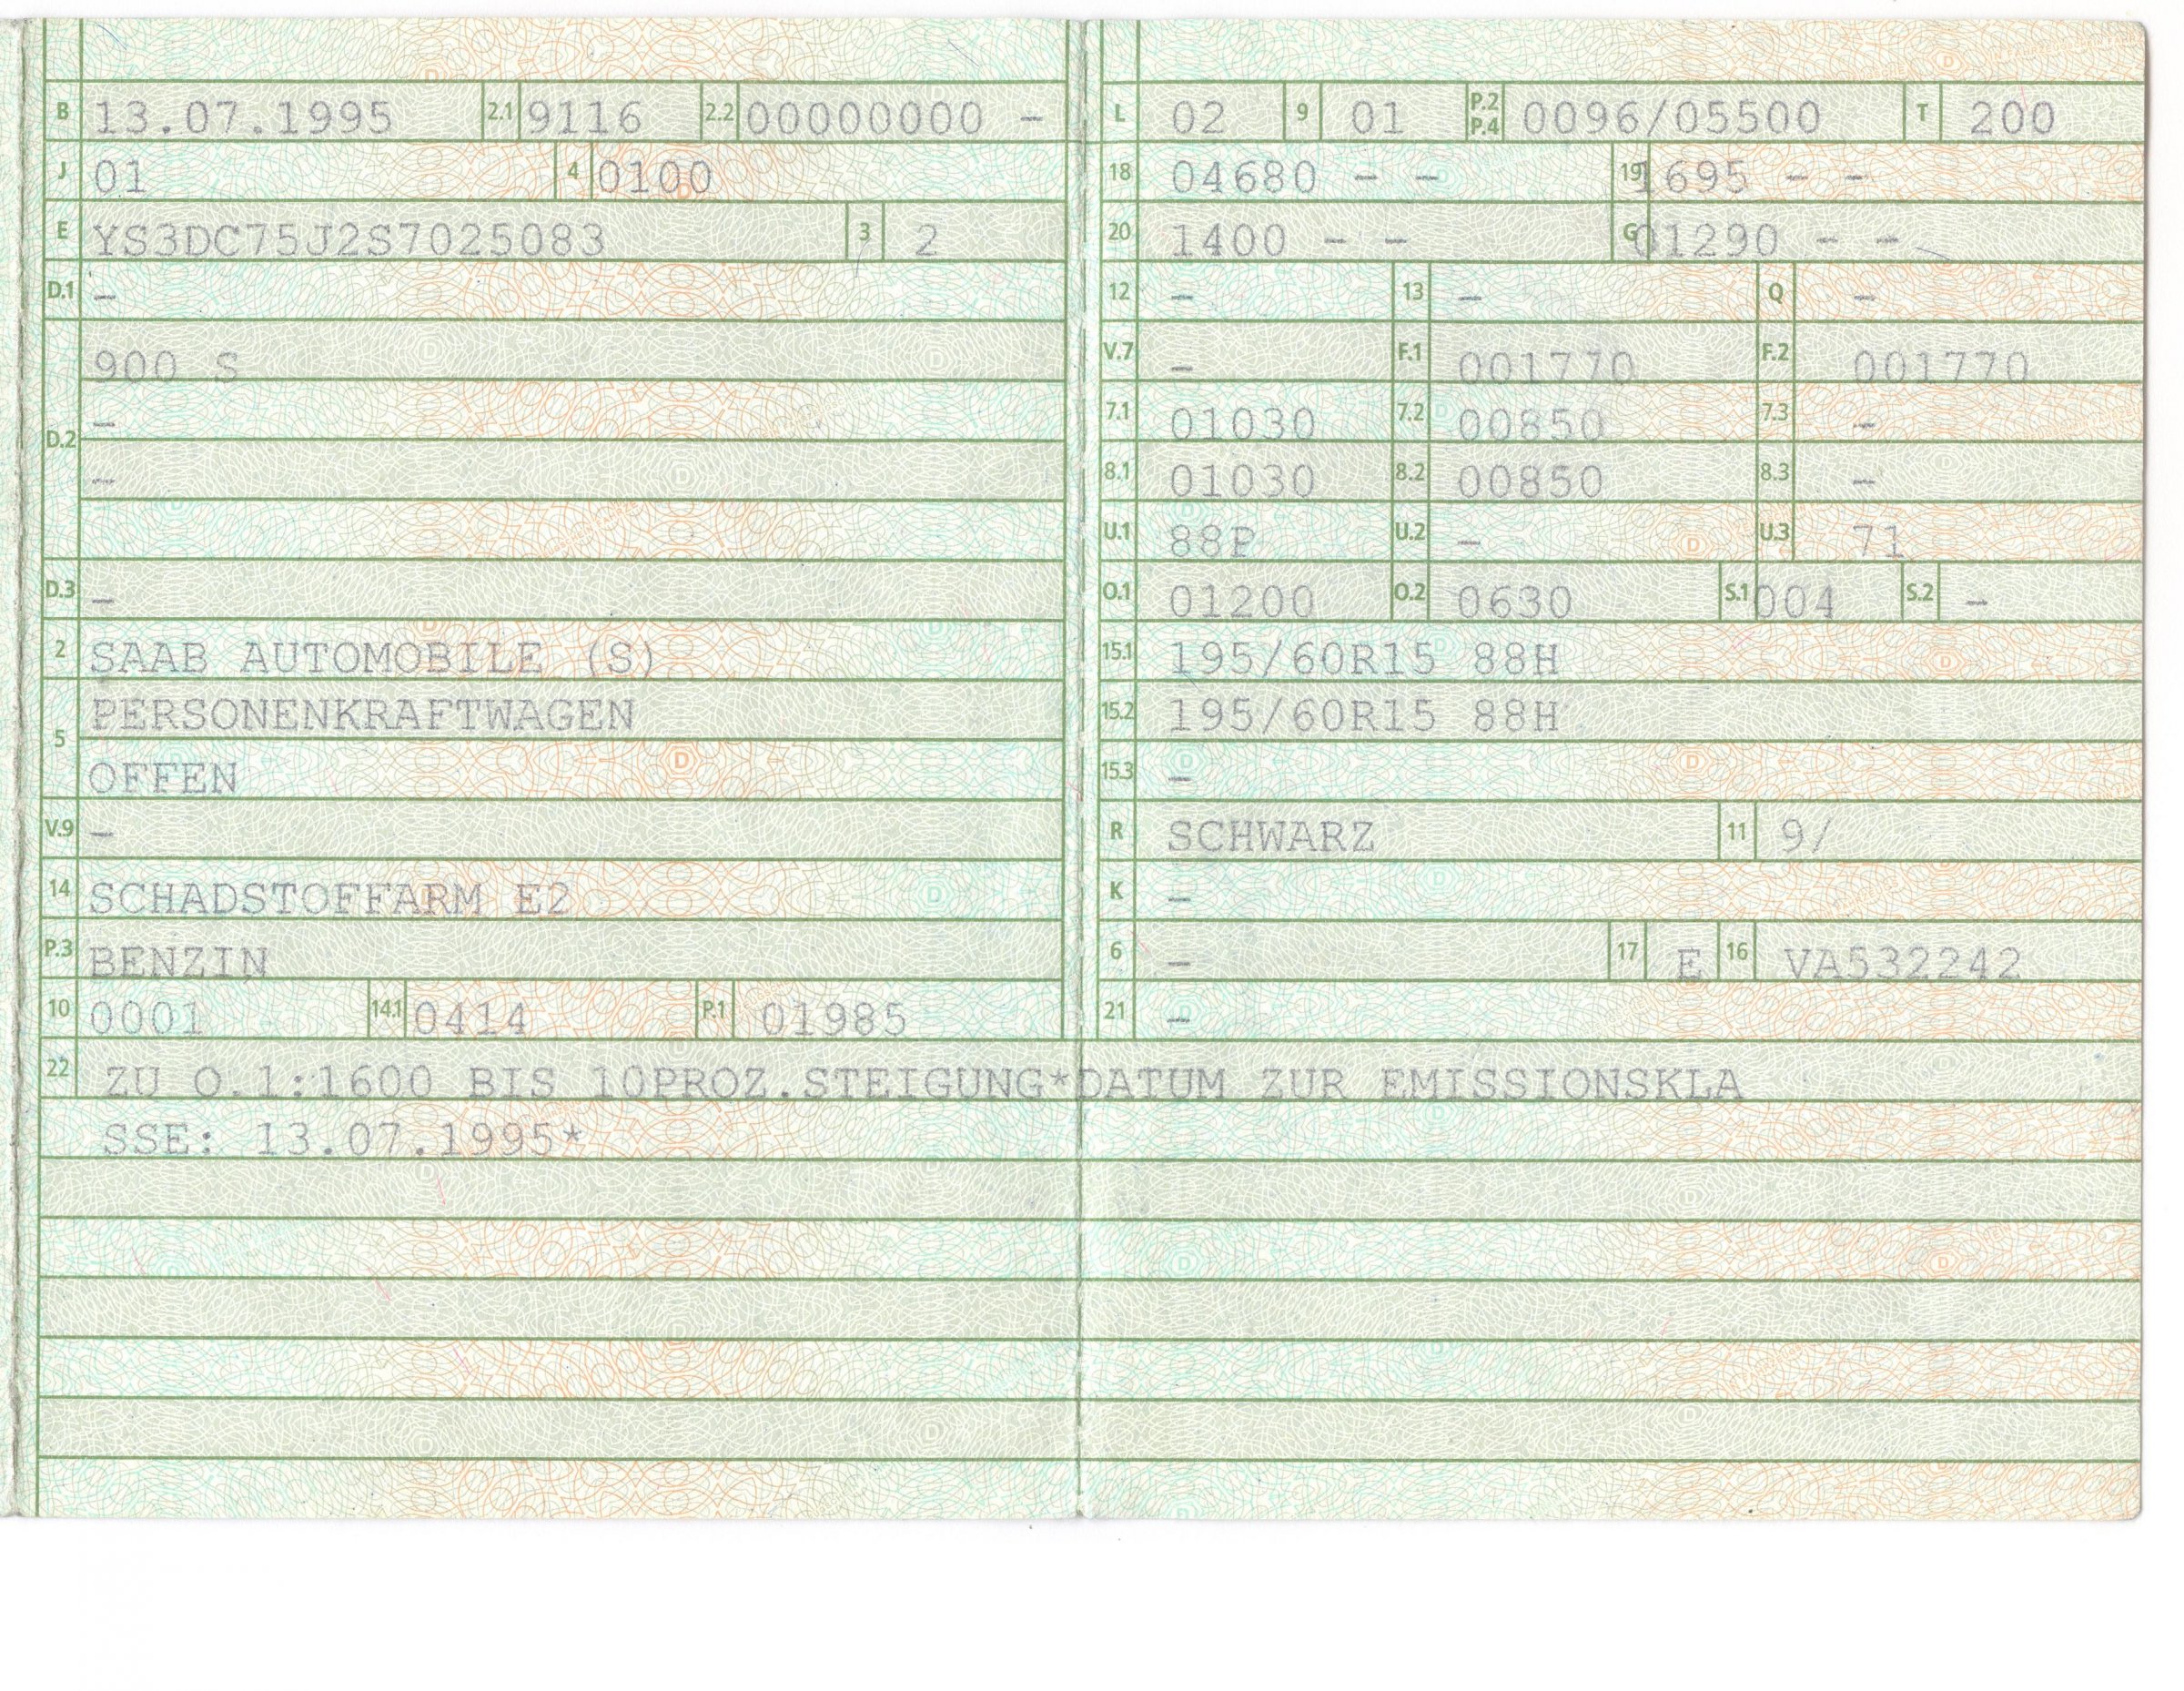 B 13.07.1995 2.1 9116 2.2 00000000 -
J 01 4 0100
E YS3DC75J2S7025083 3 2
D.1 -
900 S
-
D.2
-
D.3 -
2 SAAB AUTOMOBILE (S)
PERSONENKRAFTWAGEN
5
OFFEN
V.9 -
14 SCHADSTOFFARM E2
P.3 BENZIN
10 0001 14.1 0414 P.1 01985
L 02 9 01 P.2 P.4 0096/05500 T 200
18 04680 - - 19 1695 - -
20 1400 - - G 01290 - -
12 - 13 - Q -
V.7 - F.1 001770 F.2 001770
7.1 01030 7.2 00850 7.3 -
8.1 01030 8.2 00850 8.3 -
U.1 88P U.2 - U.3 71
O.1 01200 O.2 0630 S.1 004 S.2 -
15.1 195/60R15 88H
15.2 195/60R15 88H
15.3 -
R SCHWARZ 11 9/
K -
6 - 17 E 16 VA532242
21 -
22 ZU O.1:1600 BIS 10PROZ.STEIGUNG*DATUM ZUR EMISSIONSKLA
SSE: 13.07.1995*